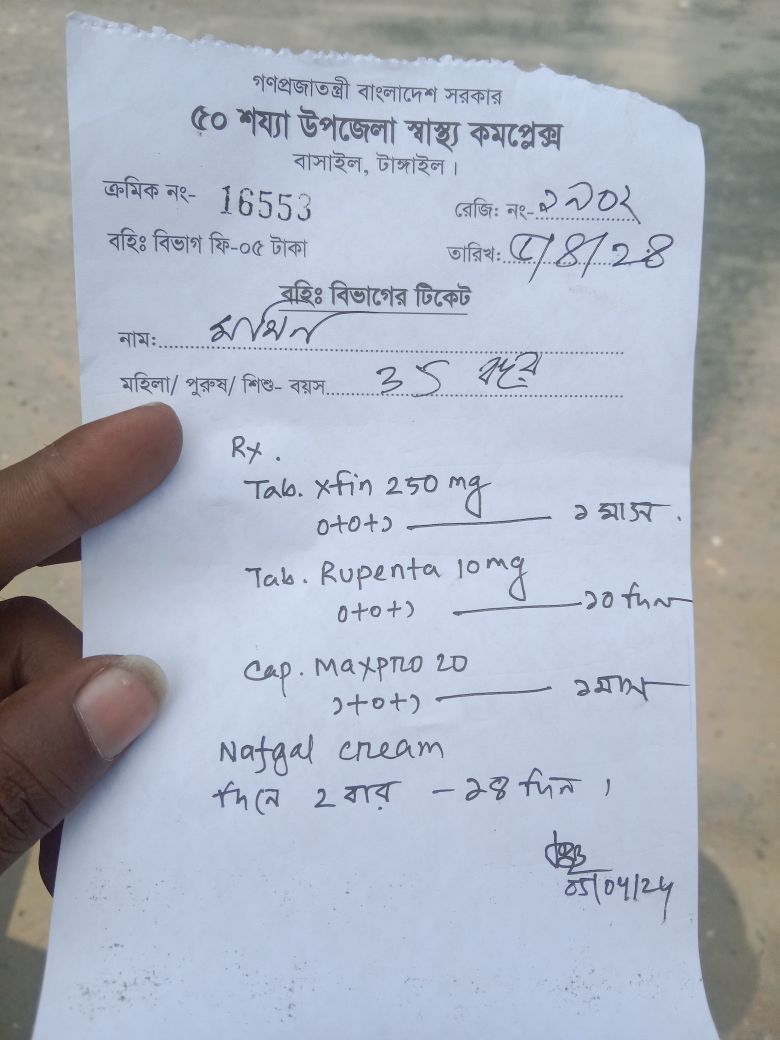 গণপ্রজাতন্ত্রী বাংলাদেশ সরকার
৫০ শয্যা উপজেলা স্বাস্থ্য কমপ্লেক্স
বাসাইল, টাঙ্গাইল।
ক্রমিক নং- 16553 রেজি: নং-..........
বহিঃ বিভাগ ফি-০৫ টাকা তারিখ: ৫/৪/২৪
বহিঃ বিভাগের টিকেট
নাম:..........
মহিলা/ পুরুষ/ শিশু- বয়স.... 35 বছর
Rx.
Tab. xfin 250 mg
0+0+১ — ১ মাস.
Tab. Rupenta 10mg
0+0+১ — ১০ দিন
Cap. Maxpro 20
১+0+১ — ১মাস
Nafgal cream
দিনে ২ বার - ১৪ দিন।
05/04/24